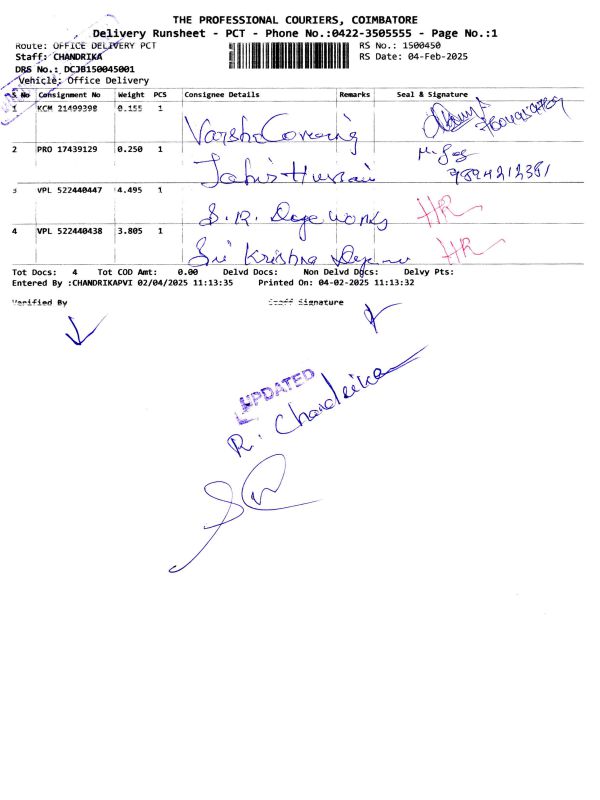 THE PROFESSIONAL COURIERS, COIMBATORE
Delivery Runsheet - PCT - Phone No.:0422-3505555 - Page No.:1
Route: OFFICE DELIVERY PCT RS No.: 1500450
Staff: CHANDRIKA RS Date: 04-Feb-2025
DRS No.: DCJB150045001
Vehicle: Office Delivery
S No Consignment No Weight PCS Consignee Details Remarks Seal & Signature
1 KCM 21499398 0.155 1 Varsha
2 PRO 17439129 0.250 1 9894212381
3 VPL 522440447 4.495 1 S.R. Works HR
4 VPL 522440438 3.805 1 Sri Krishna HR
Tot Docs: 4 Tot COD Amt: 0.00 Delvd Docs: Non Delvd Docs: Delvy Pts:
Entered By :CHANDRIKAPVI 02/04/2025 11:13:35 Printed On: 04-02-2025 11:13:32
Verified By Staff Signature
UPDATED
R. Chandrika